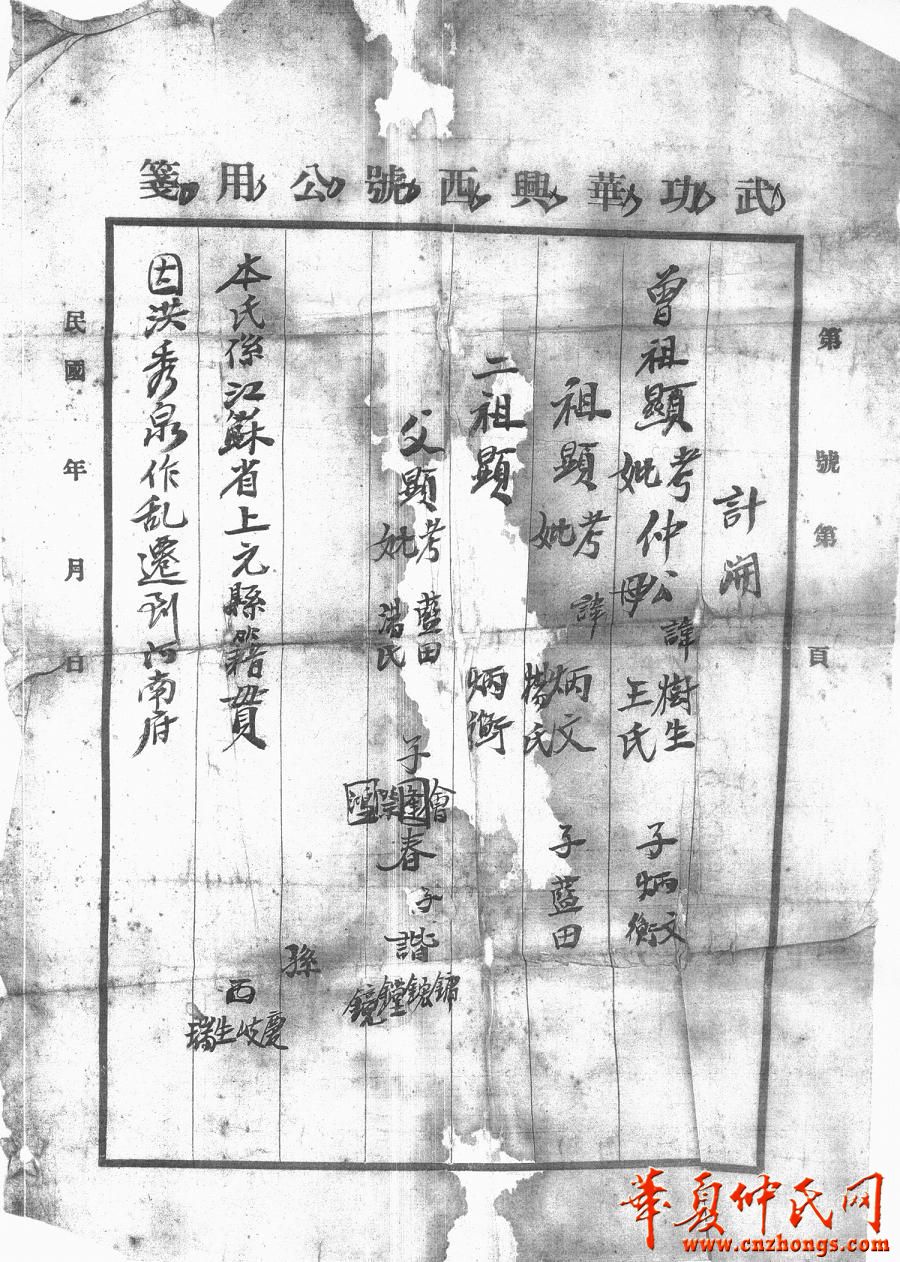 武功華興西號公用箋
第 號第 頁
計開
曾祖顯考妣仲公母諱樹生王氏 子炳文衡
祖顯考妣諱炳文楊氏 子藍田
二祖顯 炳衡
父顯考妣藍田湯氏 子會春 子諧鏞鋃鏜鏡
孫
西慶岐生瑞
本氏係江蘇省上元縣籍貫
因洪秀泉作乱遷到河南府
民國 年 月 日
華夏仲氏网
www.cnzhongs.com